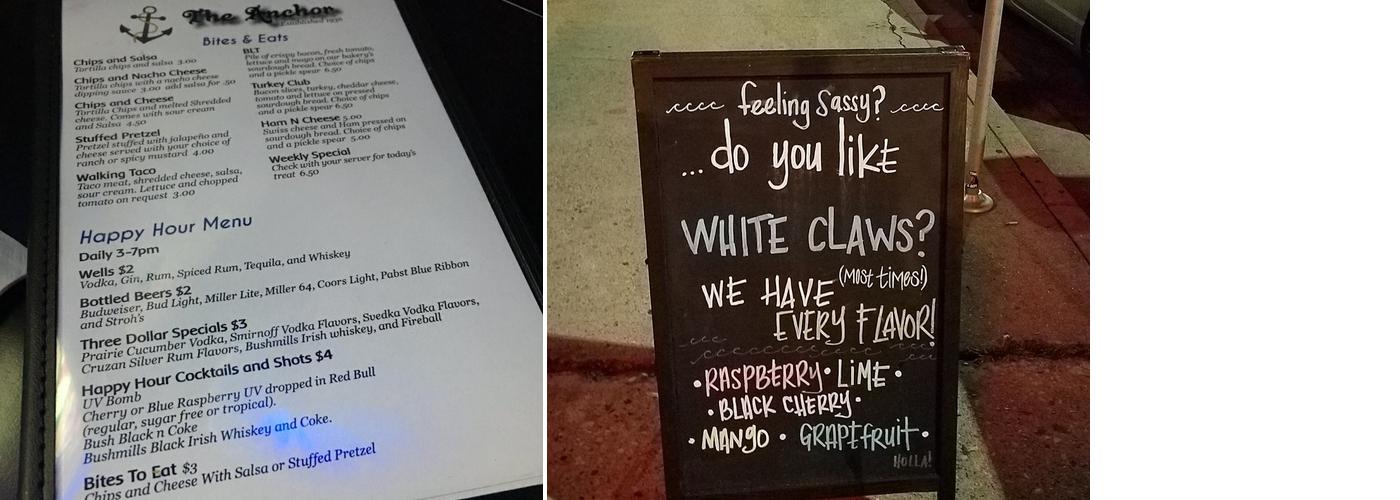 The Anchor
Established 1936
Bites & Eats
Chips and Salsa
Tortilla chips and salsa 3.00
Chips and Nacho Cheese
Tortilla chips with a nacho cheese
dipping sauce 3.00 add salsa for .50
Chips and Cheese
Tortilla Chips and melted Shredded
cheese. Comes with sour cream
and Salsa 4.50
Stuffed Pretzel
Pretzel stuffed with jalapeño and
cheese served with your choice of
ranch or spicy mustard 4.00
Walking Taco
Taco meat, shredded cheese, salsa,
sour cream. Lettuce and chopped
tomato on request 3.00
BLT
Pile of crispy bacon, fresh tomato,
lettuce and mayo on our bakery's
sourdough bread. Choice of chips
and a pickle spear 6.50
Turkey Club
Bacon slices, turkey, cheddar cheese,
tomato and lettuce on pressed
sourdough bread. Choice of chips
and a pickle spear 6.50
Ham N Cheese 5.00
Swiss cheese and Ham pressed on
sourdough bread. Choice of chips
and a pickle spear 5.00
Weekly Special
Check with your server for today's
treat 6.50
Happy Hour Menu
Daily 3-7pm
Wells $2
Vodka, Gin, Rum, Spiced Rum, Tequila, and Whiskey
Bottled Beers $2
Budweiser, Bud Light, Miller Lite, Miller 64, Coors Light, Pabst Blue Ribbon
and Stroh's
Three Dollar Specials $3
Prairie Cucumber Vodka, Smirnoff Vodka Flavors, Svedka Vodka Flavors,
Cruzan Silver Rum Flavors, Bushmills Irish whiskey, and Fireball
Happy Hour Cocktails and Shots $4
UV Bomb
Cherry or Blue Raspberry UV dropped in Red Bull
(regular, sugar free or tropical).
Bush Black n Coke
Bushmills Black Irish Whiskey and Coke.
Bites To Eat $3
Chips and Cheese With Salsa or Stuffed Pretzel
feeling Sassy?
...do you like
WHITE CLAWS?
(MOST times!)
WE HAVE
EVERY FLAVOR!
• RASPBERRY • LIME •
• BLACK CHERRY •
• MANgo • GRAPEfruit •
HOLLA!